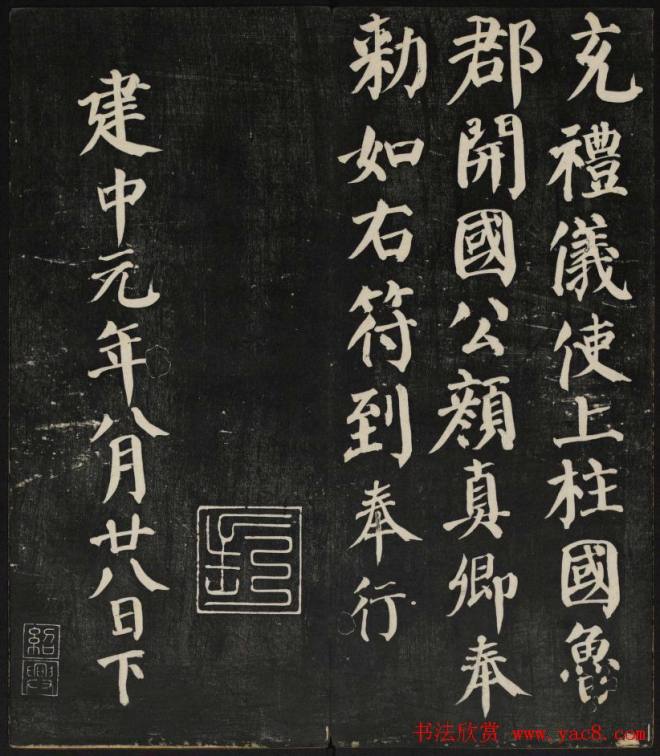 充禮儀使上柱國魯
郡開國公顏真卿奉
勑如右符到奉行
建中元年八月廿八日下
紹興
书法欣赏 www.yac8.com